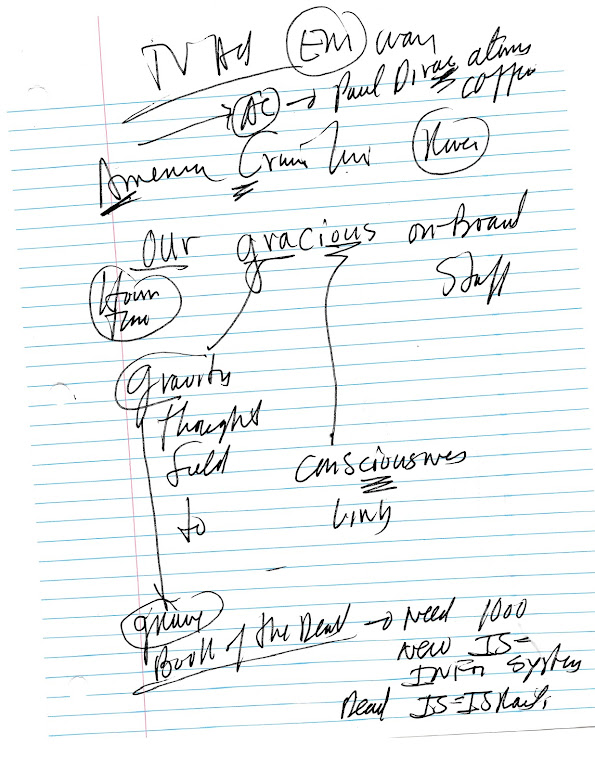 TV Ad EM wave
AC → Paul Dirac atoms
coffee
America Cruise Line River
our gracious on-Board
Staff
Hour
Time
gravity
thought
field
to
consciousness
link
grave
Book of the Dead → Need 1000
New IS =
INFO System
Dead IS = ISRaeli